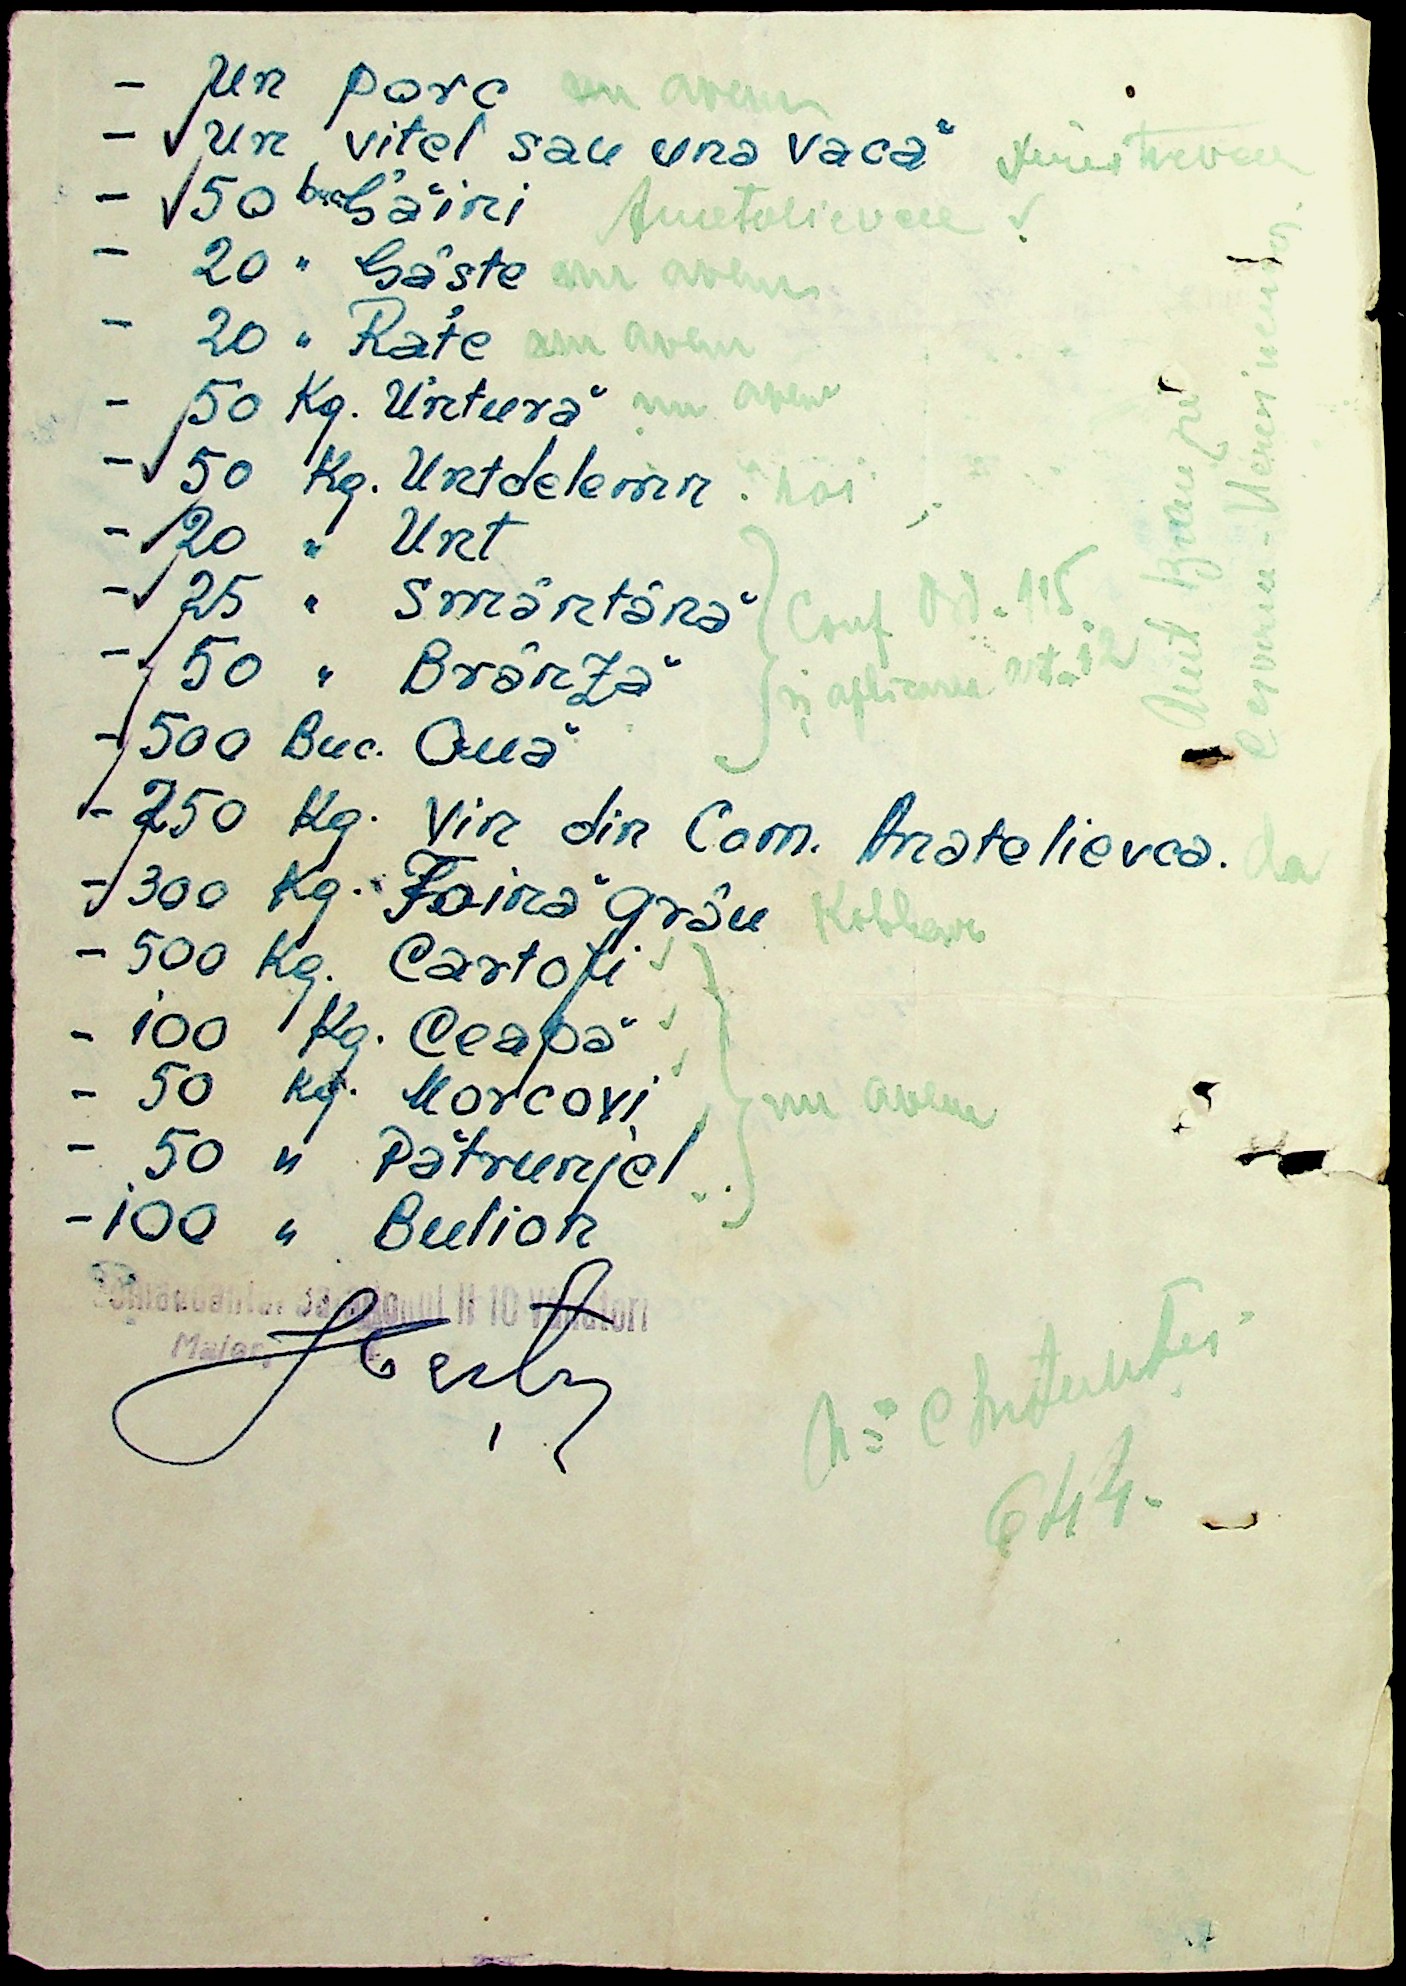 - Un porc nu avem
- Un vitel sau una vacă
- 50 buc Găini Anatolievca
- 20 " Gâste nu avem
- 20 " Rațe nu avem
- 50 Kg. Untură nu avem
- 50 Kg. Untdelemn. noi
- 20 " Unt
- 25 " Smântână Conf Od. 115
- 50 " Brânză și aplicarea art. 12
- 500 Buc. Ouă
- 250 Kg. Vin din Com. Anatelievca. da
- 300 Kg. Făină grâu
- 500 Kg. Cartofi
- 100 Kg. Ceapă
- 50 Kg. Morcovi nu avem
- 50 " Pătrunjel
- 100 " Bulion
Comandantul Batalionul 11 10 Vânători
Maior,